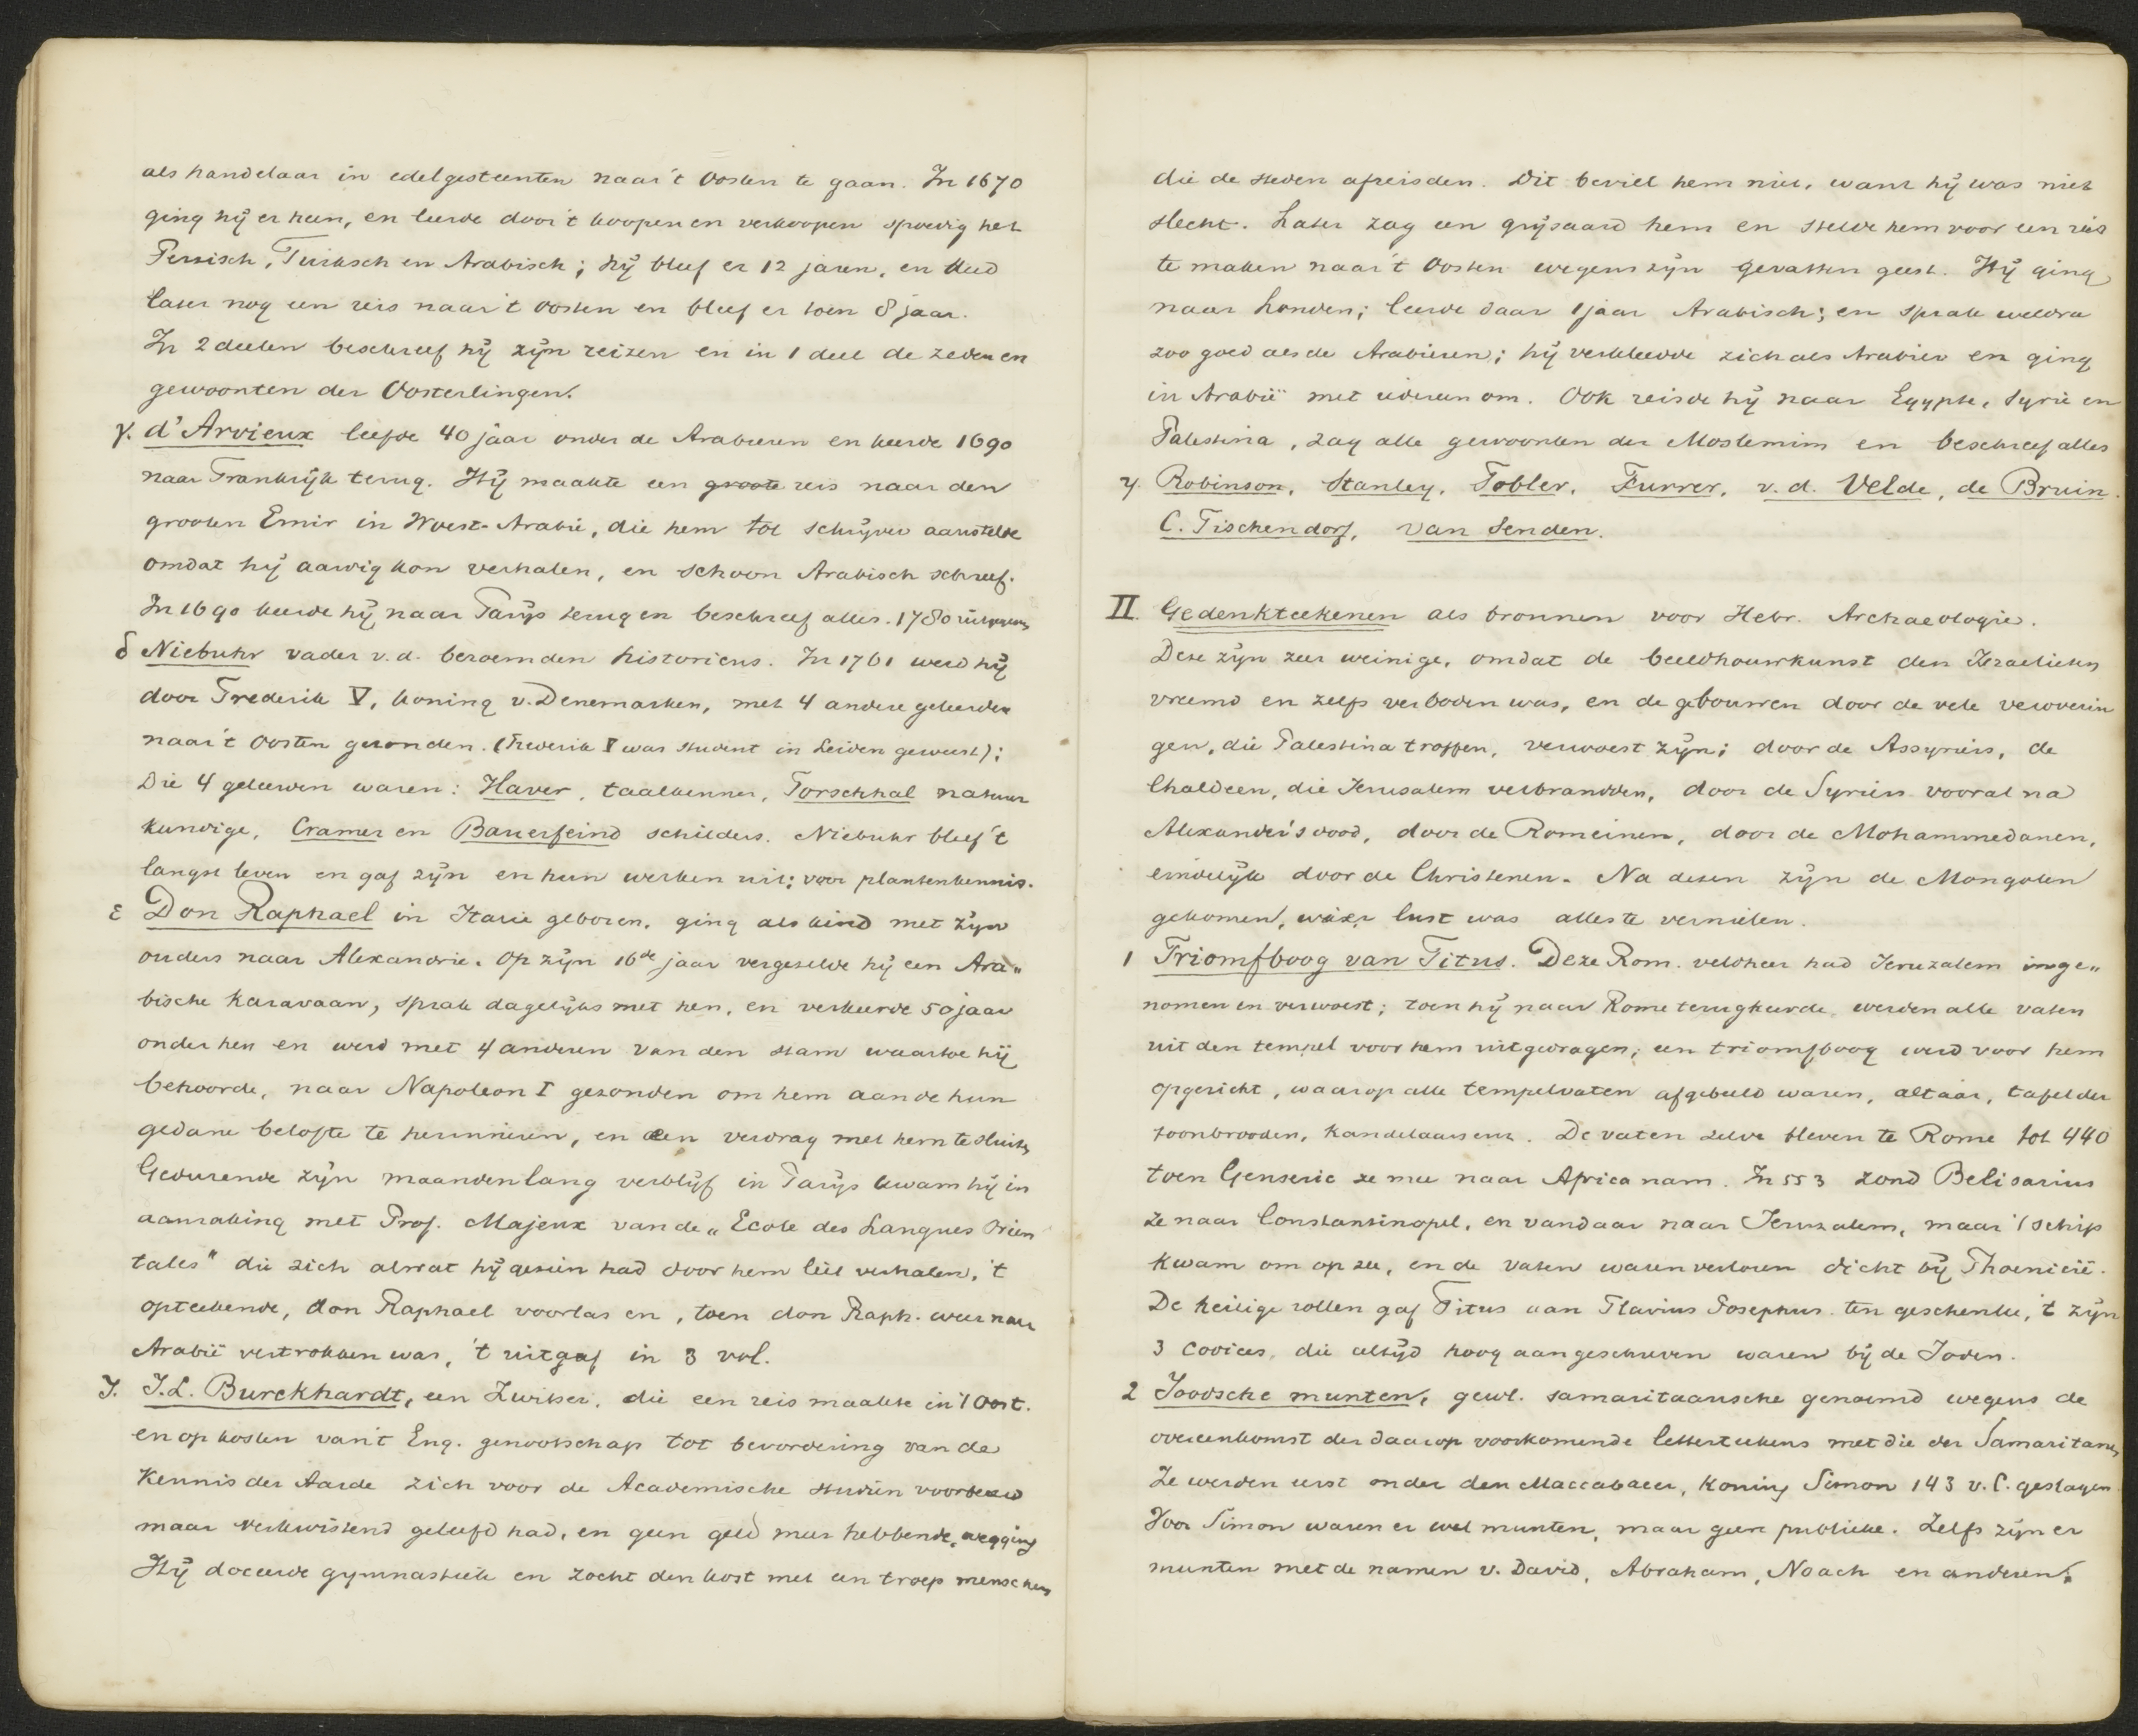 als handelaar in edelgesteenten naar 't Oosten te gaan. In 1670
ging hij er heen, en leerde door 't koopen en verkoopen spoedig het
Persisch, Turksch en Arabisch; hij bleef er 12 jaren, en deed
later nog een reis naar 't Oosten en bleef er toen 8 jaar.
In 2 deelen beschreef hij zijn reizen en in 1 deel de zeden en
gewoonten der Oosterlingen.
γ. d'Arvieux leefde 40 jaar onder de Arabieren en keerde 1690
naar Frankrijk terug. Hij maakte een groote reis naar den
grooten Emir in Woest-Arabië, die hem tot schrijver aanstelde
omdat hij aardig kon verhalen, en schoon Arabisch schreef.
In 1690 keerde hij naar Parijs terug en beschreef alles. 1780 uitgegeven
δ Niebuhr vader v.d. beroemden historicus. In 1761 werd hij
door Frederik V, koning v. Denemarken, met 4 andere geleerden
naar 't Oosten gezonden. (Frederik V was student in Leiden geweest);
Die 4 geleerden waren: Haver, taalkenner, Forschhal natuur
kundige, Cramer en Bauerfeind schilders. Niebuhr bleef 't
langst leven en gaf zijn en hun werken uit; voor plantenkennis.
ε Don Raphael in Italië geboren, ging als kind met zijn
ouders naar Alexandrië. Op zijn 16de jaar vergezelde hij een Ara„
bische karavaan, sprak dagelijks met hen, en verkeerde 50 jaar
onder hen en werd met 4 anderen van den stam waartoe hij
behoorde, naar Napoleon I gezonden om hem aan de hun
gedane belofte te herinneren, en een verdrag met hem te sluiten
Gedurende zijn maandenlang verblijf in Parijs kwam hij in
aanraking met Prof. Majeux van de „Ecole des Langues Orien
tales" die zich alwat hij gezien had door hem liet verhalen, 't
opteekende, don Raphael voorlas en, toen don Raph. weer naar
Arabië vertrokken was, 't uitgaf in 3 vol.
ζ. J.L. Burckhardt, een Zwitser, die een reis maakte in 't Oost.
en op kosten van 't Eng. genootschap tot bevordering van de
Kennis der Aarde zich voor de Academische studiën voorbereid
maar verkwistend geleefd had, en geen geld meer hebbende, wegging
Hij doceerde gymnastiek en zocht den kost met een troep menschen
die de steden afreisden. Dit beviel hem niet, want hij was niet
slecht. Later zag een grijsaard hem en stelde hem voor een reis
te maken naar 't Oosten wegens zijn gevatten geest. Hij ging
naar Londen; leerde daar 1 jaar Arabisch; en sprak weldra
zoo goed als de Arabieren; hij verkleedde zich als Arabier en ging
in Arabië met iedereen om. Ook reisde hij naar Egypte, Syrië en
Palestina, zag alle gewoonten der Moslemim en beschreef alles
η. Robinson, Stanley, Tobler, Furrer, v.d. Velde, de Bruin.
C. Tischendorf, van Senden.
II. Gedenkteekenen als bronnen voor Hebr. Archaeologie.
Deze zijn zeer weinige, omdat de beeldhouwkunst den Israelieten
vreemd en zelfs verboden was, en de gebouwen door de vele veroverin
gen, die Palestina troffen, verwoest zijn; door de Assyriërs, de
Chaldeen, die Jerusalem verbrandden, door de Syriërs vooral na
Alexander's dood, door de Romeinen, door de Mohammedanen,
eindelijk door de Christenen. Na dezen zijn de Mongolen
gekomen, wier lust was alles te vernielen.
1 Triomfboog van Titus. Deze Rom. veldheer had Jeruzalem inge„
nomen en verwoest; toen hij naar Rome terugkeerde, werden alle vaten
uit den tempel voor hem uitgedragen; een triomfboog werd voor hem
opgericht, waarop alle tempelvaten afgebeeld waren, altaar, tafel der
toonbrooden, kandelaars enz. De vaten zelve bleven te Rome tot 440
toen Genseric ze mee naar Africa nam. In 553 zond Belisarius
ze naar Constantinopel, en vandaar naar Jeruzalem, maar 't schip
kwam om op zee, en de vaten waren verloren dicht bij Phoenicië.
De heilige rollen gaf Titus aan Flavius Josephus ten geschenke, 't zijn
3 codices, die altijd hoog aangeschreven waren bij de Joden.
2 Joodsche munten, gewl. samaritaansche genoemd wegens de
overeenkomst der daarop voorkomende letterteekens met die der Samaritanen
Ze werden eerst onder den Maccabaeer, koning Simon 143 v.C. geslagen
Voor Simon waren er wel munten, maar geen publieke. Zelfs zijn er
munten met de namen v. David, Abraham, Noach en anderen.